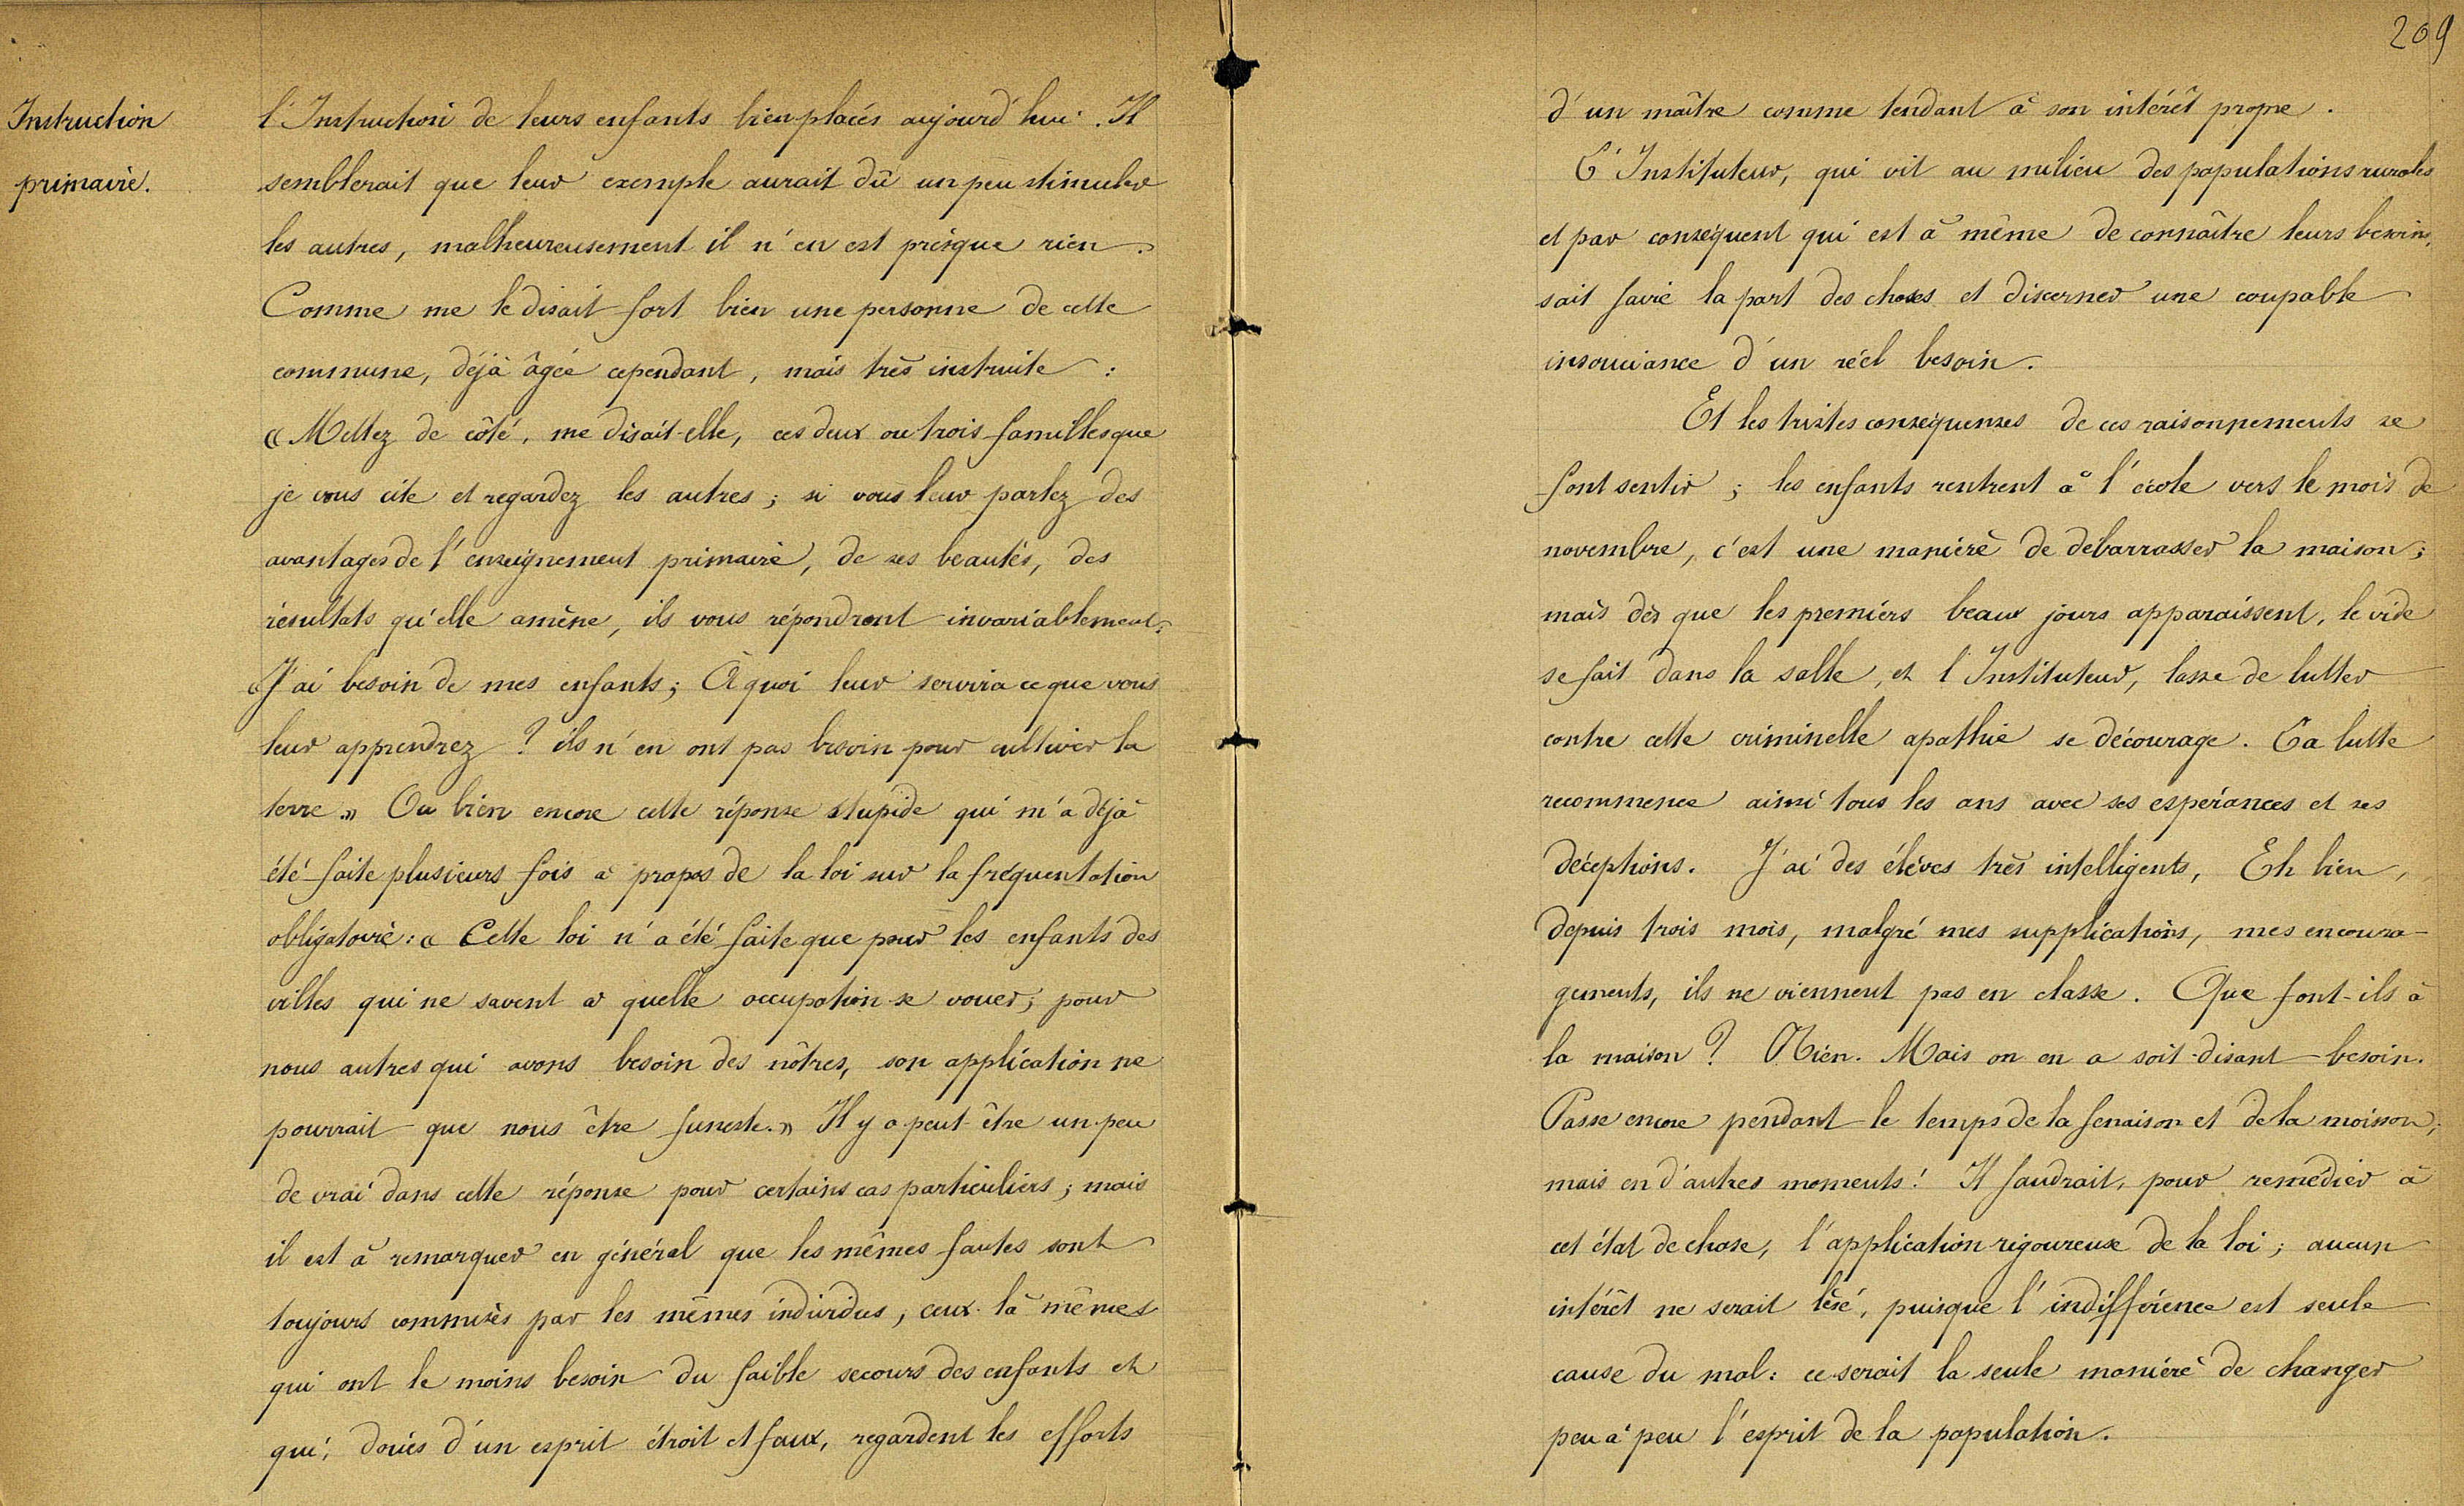 Instruction
primaire.
l'Instruction de leurs enfants bien placés aujourd'hui. Il
semblerait que leur exemple aurait dû un peu stimuler
les autres, malheureusement il n'en est presque rien.
Comme me le disait fort bien une personne de cette
commune, déjà âgée cependant, mais très instruite :
« Mettez de côté, me disait-elle, ces deux ou trois familles que
je vous cite et regardez les autres ; si vous leur parlez des
avantages de l'enseignement primaire, de ses beautés, des
résultats qu'elle amène, ils vous répondront invariablement :
« J'ai besoin de mes enfants ; À quoi leur servira ce que vous
leur apprendrez ? ils n'en ont pas besoin pour cultiver la
terre. » Ou bien encore cette réponse stupide qui m'a déjà
été faite plusieurs fois à propos de la loi sur la fréquentation
obligatoire : « Cette loi n'a été faite que pour les enfants des
villes qui ne savent à quelle occupation se vouer ; pour
nous autres qui avons besoin des nôtres, son application ne
pourrait que nous être funeste. » Il y a peut-être un peu
de vrai dans cette réponse pour certains cas particuliers ; mais
il est à remarquer en général que les mêmes fautes sont
toujours commises par les mêmes individus, ceux-là mêmes
qui ont le moins besoin du faible secours des enfants et
qui, doués d'un esprit étroit et faux, regardent les efforts
209
d'un maître comme tendant à son intérêt propre.
L'Instituteur, qui vit au milieu des populations rurales
et par conséquent qui est à même de connaître leurs besoins,
sait faire la part des choses et discerner une coupable
insouciance d'un réel besoin.
Et les tristes conséquenses de ces raisonnements se
font sentir ; les enfants rentrent à l'école vers le mois de
novembre, c'est une manière de débarrasser la maison ;
mais dès que les premiers beaux jours apparaissent, le vide
se fait dans la salle, et l'Instituteur, lasse de lutter
contre cette criminelle apathie se décourage. La lutte
recommence ainsi tous les ans avec ses espérances et ses
déceptions. J'ai des élèves très intelligents, Eh bien,
depuis trois mois, malgré mes supplications, mes encoura-
gements, ils ne viennent pas en classe. Que font-ils à
la maison ? Rien. Mais on en a soit-disant besoin.
Passe encore pendant le temps de la fenaison et de la moisson,
mais en d'autres moments ! Il faudrait, pour remédier à
cet état de chose, l'application rigoureuse de la loi ; aucun
intérêt ne serait lésé, puisque l'indifférence est seule
cause du mal : ce serait la seule manière de changer
peu à peu l'esprit de la population.